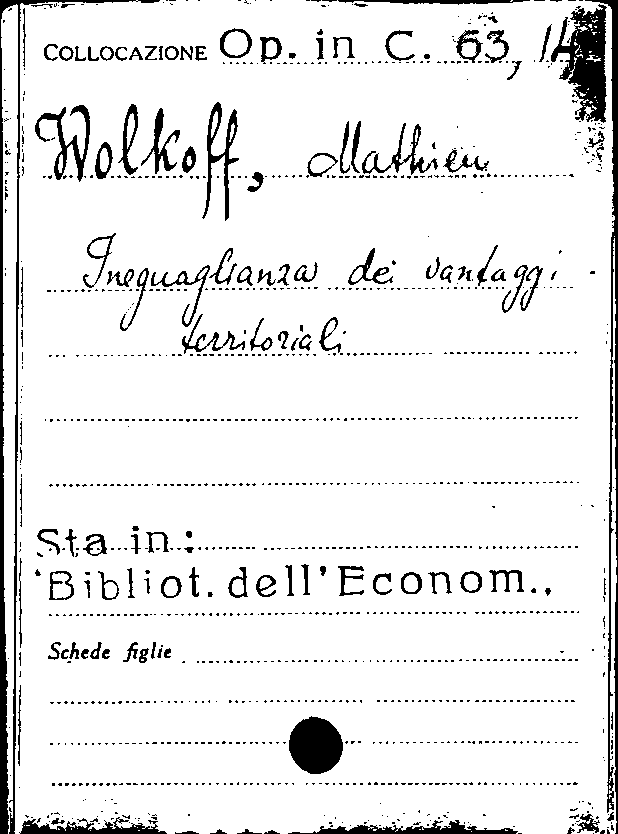 COLLOCAZIONE Op. in C. 63, 14
Wolkoff, Mathieu
Ineguaglianza dei vantaggi
territoriali
Sta in:
Bibliot. dell'Econom.,
Schede figlie